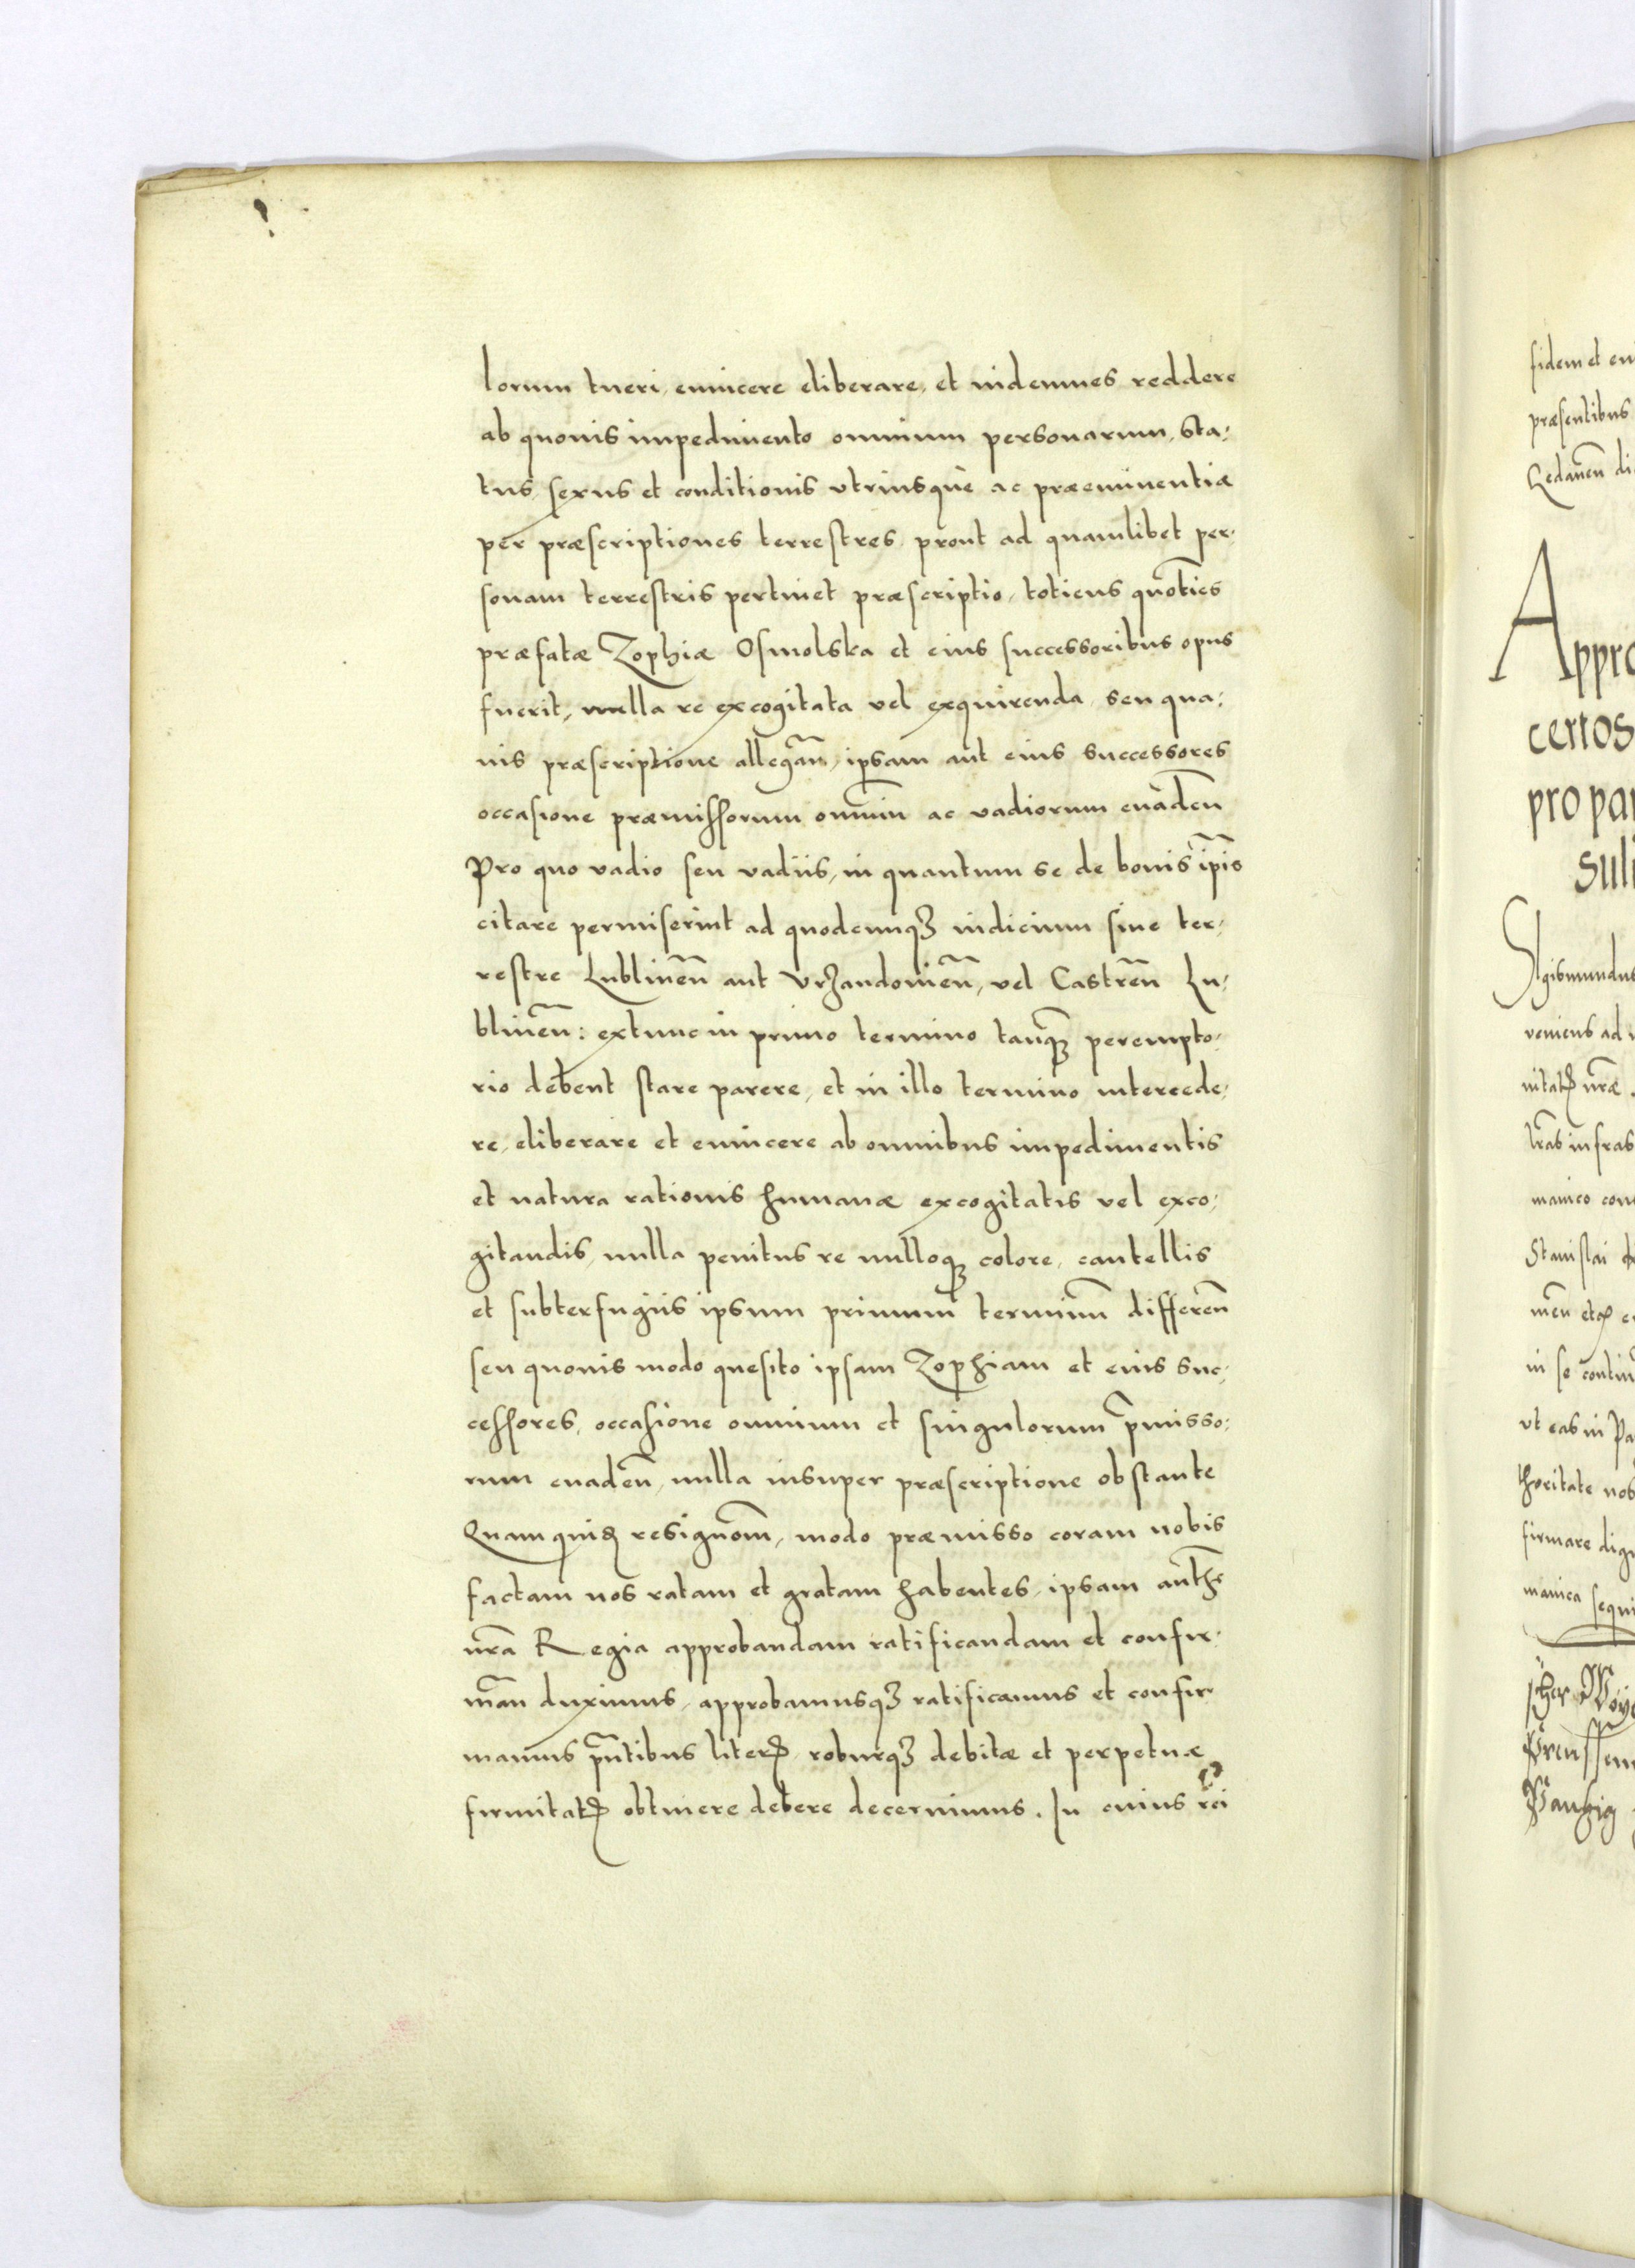 lorum tueri, euincere eliberare, et indemnes reddere
ab quouis impedimento omnium personarum, sta,
tus, sexus et conditionis vtriusquè ac præeminentiæ
per præscriptiones terrestres, prout ad quamlibet per,
sonam terrestris pertinet præscriptio, totiens quoties
præfatæ Zophiæ Osmolska et eius successoribus opus
fuerit, nulla re excogitata vel exquirenda, seu qua,
uis præscriptione allegañ, ipsam aut eius successores
occasione præmissorum omniũ ac vadiorum euadeñ
Pro quo vadio seu vadiis, in quantum se de bonis ip̃is
citare permiserint ad quodcunqꝫ iudicium siue ter,
restre Lublineñ aut Vrzandouieñ, vel Castreñ Lu,
blineñ: extunc in primo termino tanqꝫ perempto,
rio debent stare parere, et in illo termino intercede,
re, eliberare et euincere ab omnibus impedimentis
et natura rationis humanæ excogitatis vel exco,
gitandis, nulla penitus re nulloqꝫ colore, cautellis
et subterfugiis ipsum primum terminũ differeñ
seu quouis modo quesito ipsam Zophiam et eius suc,
cessores, occasione omnium et singulorum p̃misso,
rum euadeñ, nulla insuper præscriptione obstante
Quam quidẽ resignõm, modo præmisso coram nobis
factam nos ratam et gratam habentes, ipsam auth̃e
nr̃a Regia approbandam ratificandam et confir,
mañ duximus, approbamusqꝫ ratificamus et confir,
mamus p̃ntibus literꝭ, roburqꝫ debitæ et perpetuæ
firmitatꝭ obtinere debere decernimus. In cuius rei
fidem et
præsentibus
Gedaneñ
Appro
certos
pro par
suli
Sigismundus
veniens ad
nitatꝭ nr̃æ
lr̃as infras
manico
Stanislai
in se
vt eas in
thoritate nos
firmare
manica sequi